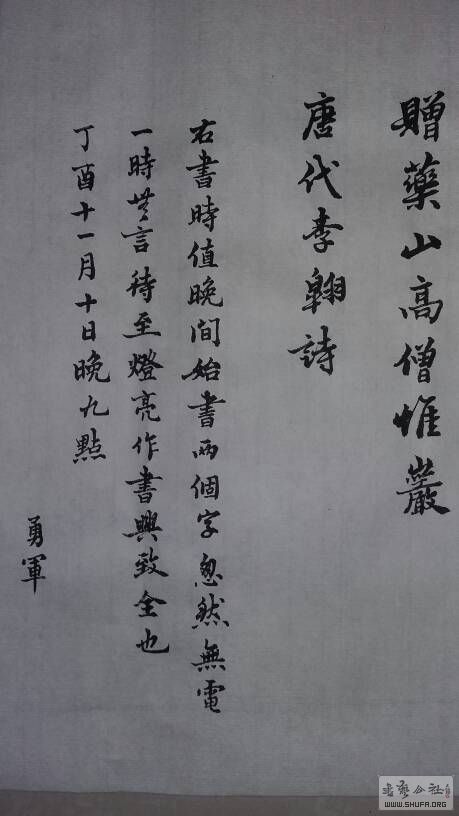 贈藥山高僧惟巖
唐代李翱詩
右書時值晚間始書兩個字忽然無電
一時無言待至燈亮作書興致全也
丁酉十一月十日晚九點
勇軍
書藝公社
WWW.SHUFA.ORG